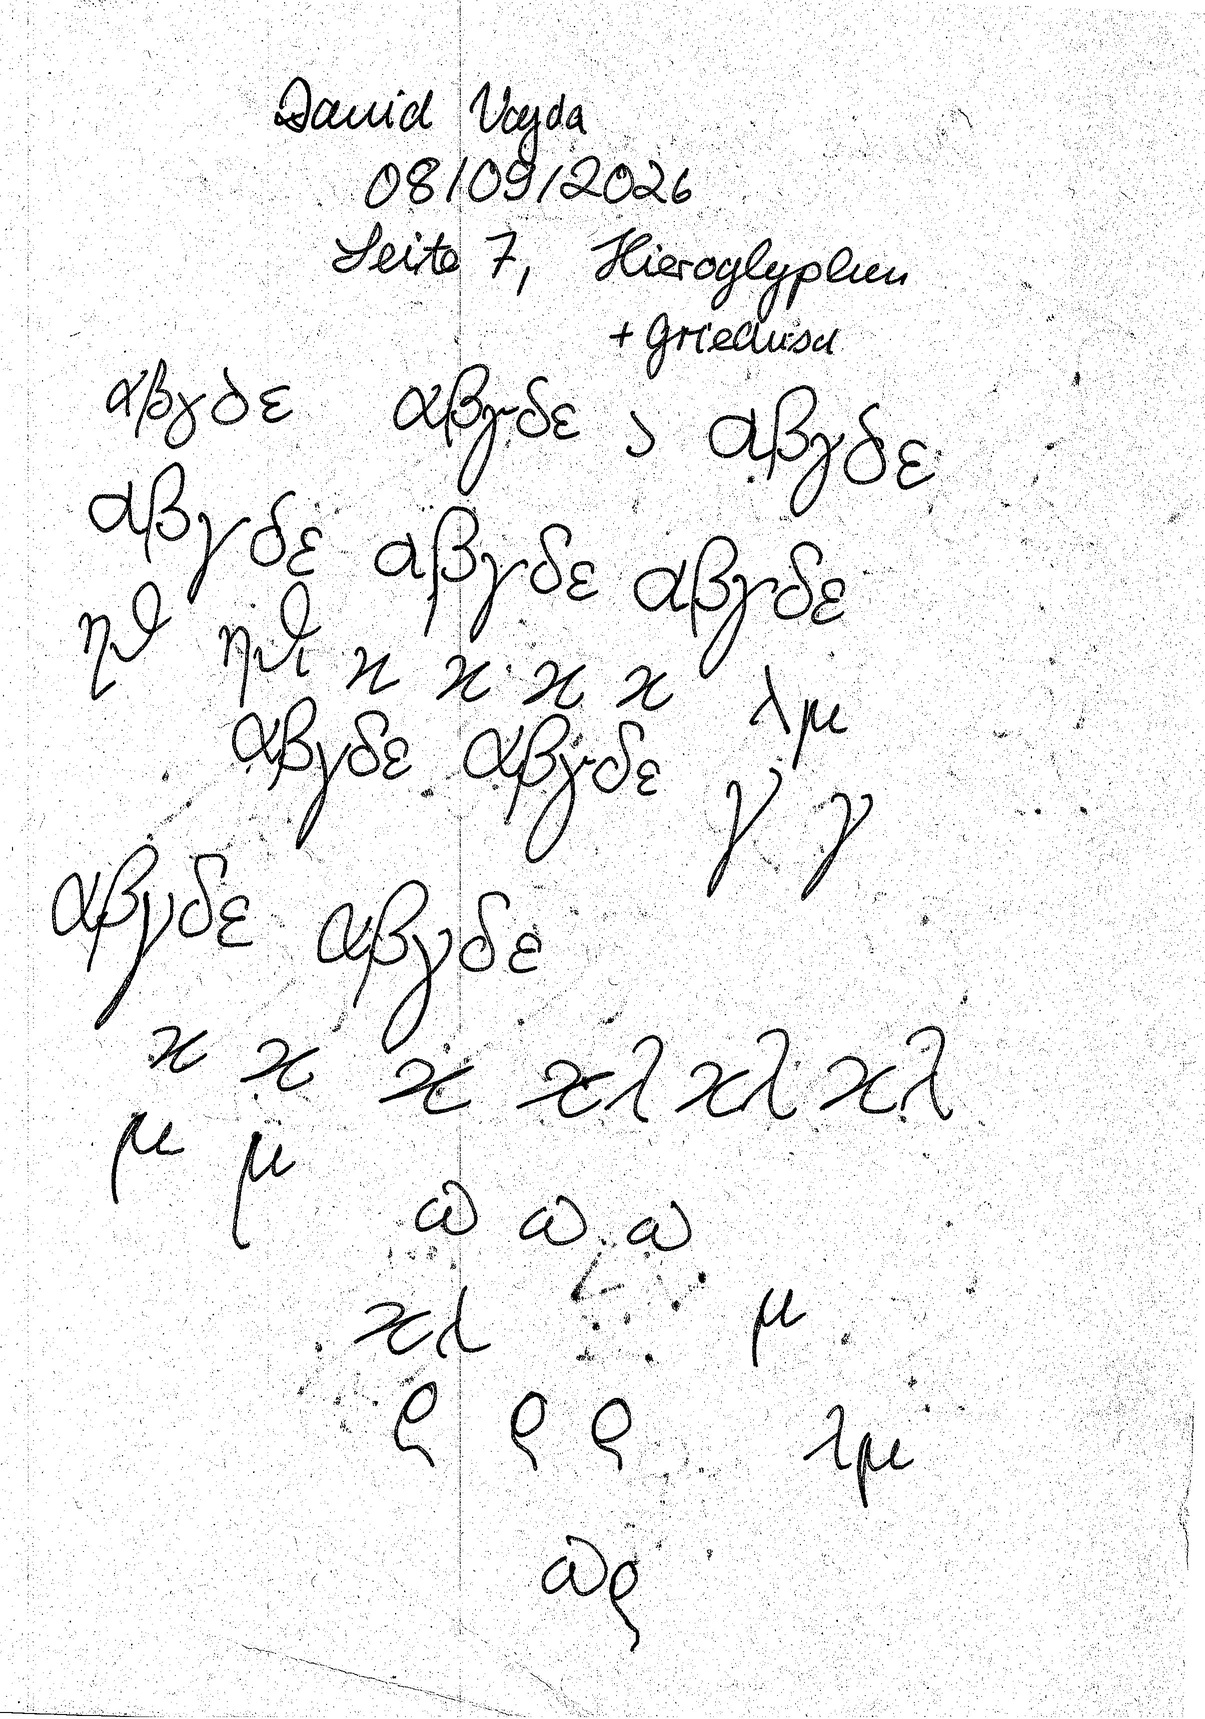 David Vajda
08/09/2026
Seite 7, Hieroglyphen
+ Griechisch
αβγδε αβγδε αβγδε
αβγδε αβγδε αβγδε
ηϑ ηϑι ϰ ϰ ϰ ϰ λμ
αβγδε αβγδε γ γ
αβγδε αβγδε
ϰ ϰ ϰ ϰλ ϰλ ϰλ
μ μ
ω ω ω
ϰλ μ
ϱ ϱ ϱ λμ
ωϱ